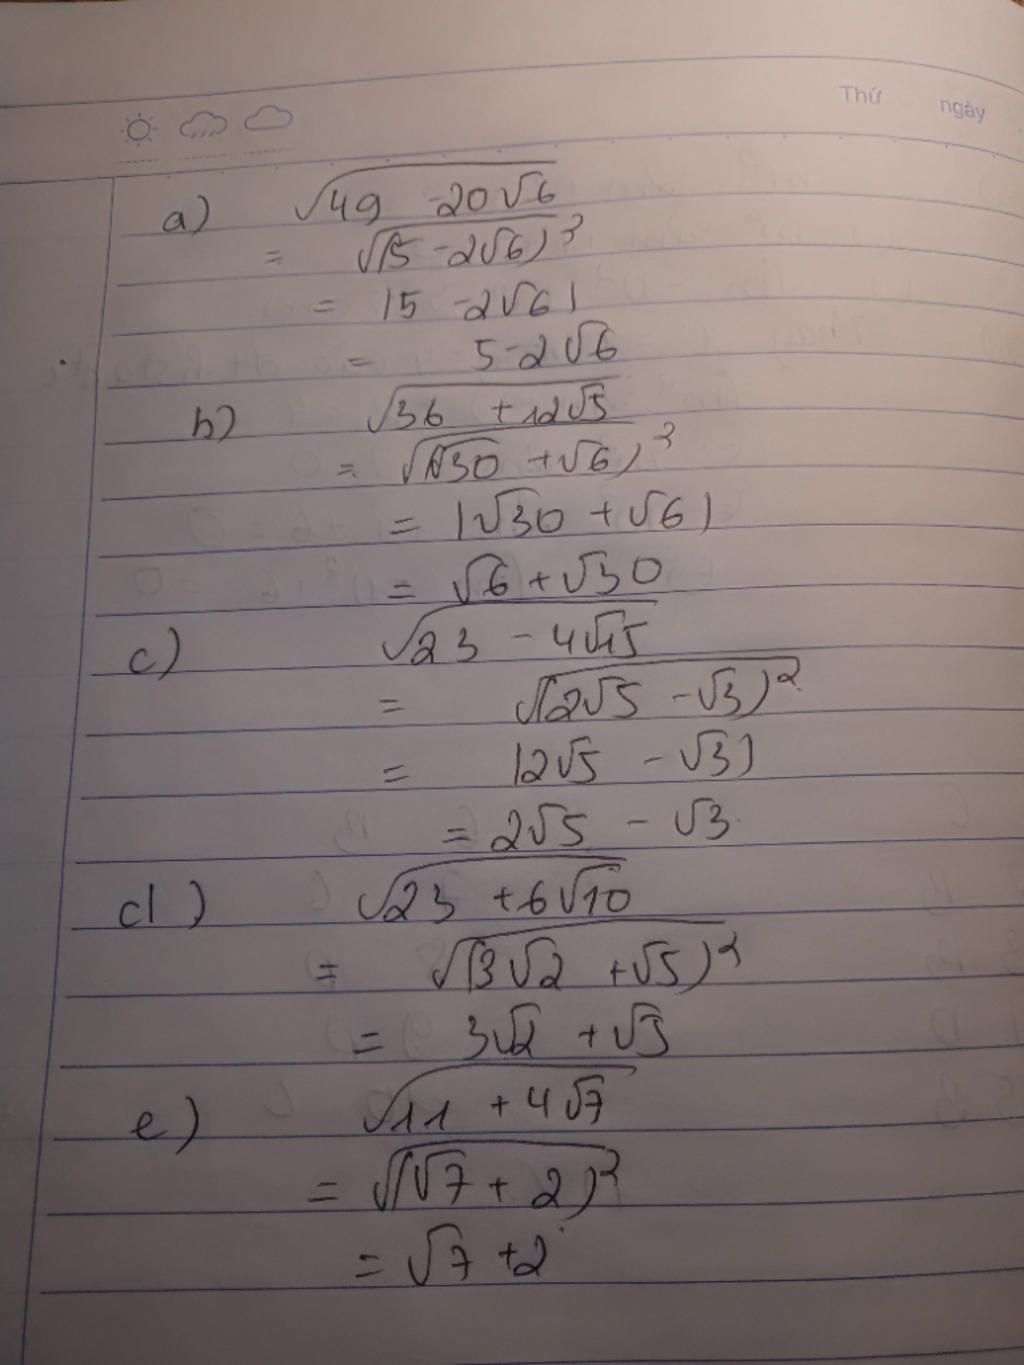 Thứ ngày
a) √(49 - 20√6)
= √(5 - 2√6)²
= |5 - 2√6|
= 5 - 2√6
b) √(36 + 12√5)
= √(√30 + √6)²
= |√30 + √6|
= √6 + √30
c) √(23 - 4√15)
= √(2√5 - √3)²
= |2√5 - √3|
= 2√5 - √3
d) √(23 + 6√10)
= √(3√2 + √5)²
= 3√2 + √5
e) √(11 + 4√7)
= √(√7 + 2)²
= √7 + 2